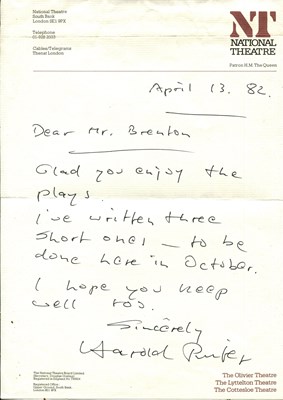 National Theatre
South Bank
London SE1 9PX
Telephone
01-928 2033
Cables/Telegrams
Thenat London
NT
NATIONAL
THEATRE
Patron H.M. The Queen
April 13. 82.
Dear Mr. Brenton
Glad you enjoy the
plays.
I've written three
short ones – to be
done here in October.
I hope you keep
well too.
Sincerely
Harold Pinter
The National Theatre Board Limited
Registered Office
The Olivier Theatre
The Lyttelton Theatre
The Cottesloe Theatre